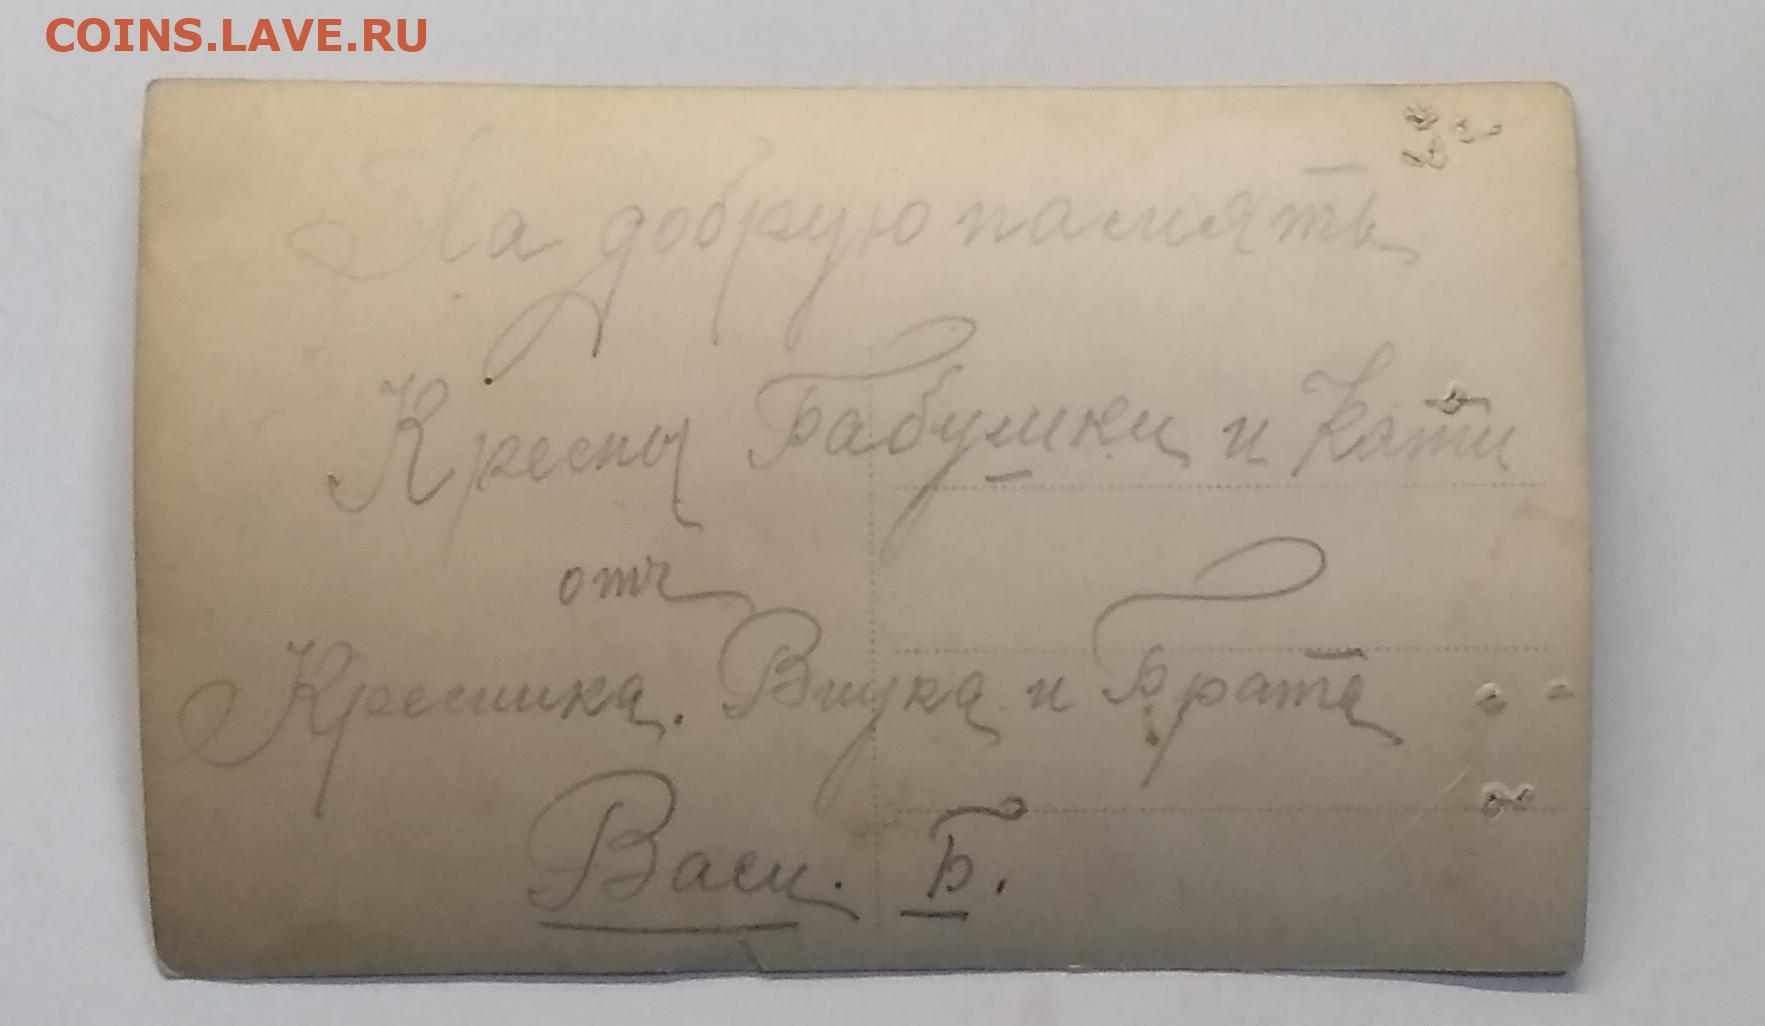 COINS.LAVE.RU
На добрую память
Кресны Бабушки и Кати
отъ
Кресника. Внука и Брата
Васи. Б.